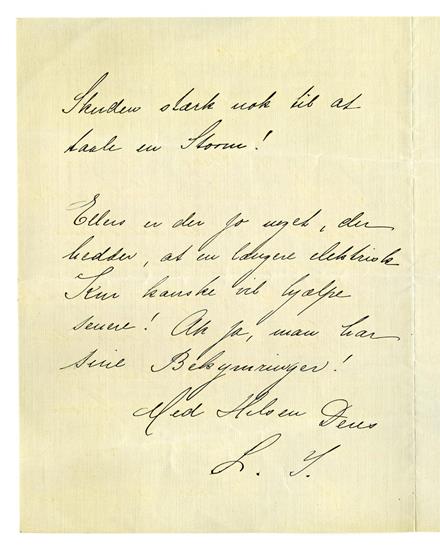 Skuden stærk nok til at
taale en Storm!
Ellers er der jo noget, der
hedder, at en længere elektrisk
Kur kanske vil hjælpe
senere! Ak ja, man har
sine Bekymringer!
Med Hilsen Deres
L. T.